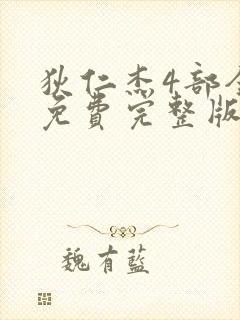 狄仁杰4部全
免费完整版
魏有藍